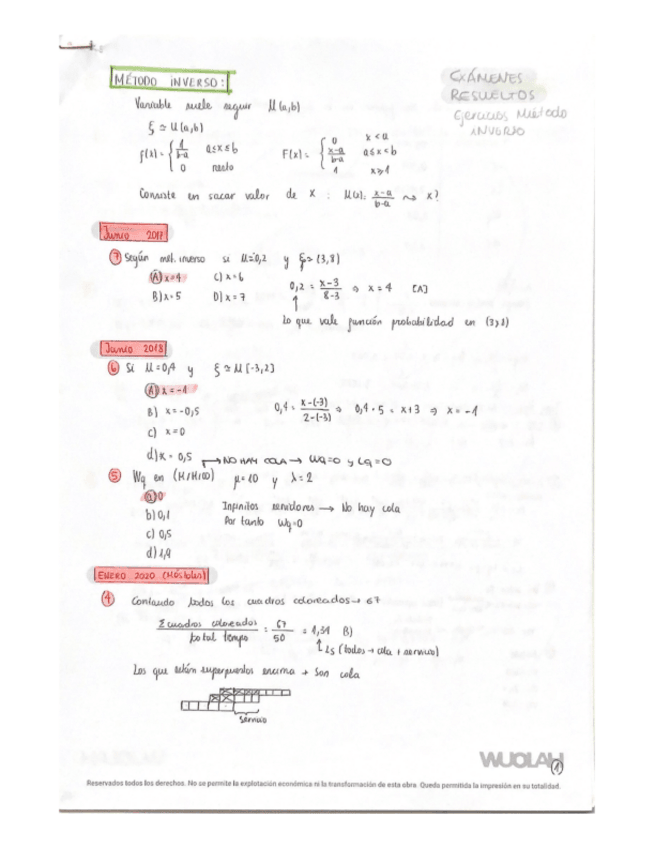 MÉTODO INVERSO:
EXÁMENES
RESUELTOS
Ejercicios Método
INVERSO
Variable suele seguir U(a,b)
ξ ≃ U(a,b)
f(x) = { 1/(b-a) a≤x≤b
0 resto
F(x) = { 0 x<a
(x-a)/(b-a) a≤x<b
1 x≥1
Consiste en sacar valor de X : M(x)= (x-a)/(b-a) ⇝ x?
Junio 2017
⑦ Según mét. inverso si U=0,2 y ξ ≃ (3,8)
A) x=4 C) x=6
B) x=5 D) x=7
0,2 = (x-3)/(8-3) ⇒ x=4 [A]
Lo que vale función probabilidad en (3,8)
Junio 2018
⑥ Si U=0,4 y ξ ≃ U[-3,2]
A) x=-1
B) x=-0,5
C) x=0
d) x=0,5
0,4 = (x-(-3))/(2-(-3)) ⇒ 0,4·5 = x+3 ⇒ x=-1
→ NO HAY COLA → Wq=0 y Lq=0
⑤ Wq en (M/M/∞) μ=10 y λ=2
a) 0
b) 0,1
c) 0,5
d) 1,9
Infinitos servidores → No hay cola
Por tanto Wq=0
ENERO 2020 (Móstoles)
④ Contando todos los cuadros coloreados → 67
Σ cuadros coloreados / total tiempo = 67/50 = 1,34 B)
Ls (todos → cola + servicio)
Los que están superpuestos encima → son cola
servicio
WUOLAH
①
Reservados todos los derechos. No se permite la explotación económica ni la transformación de esta obra. Queda permitida la impresión en su totalidad.